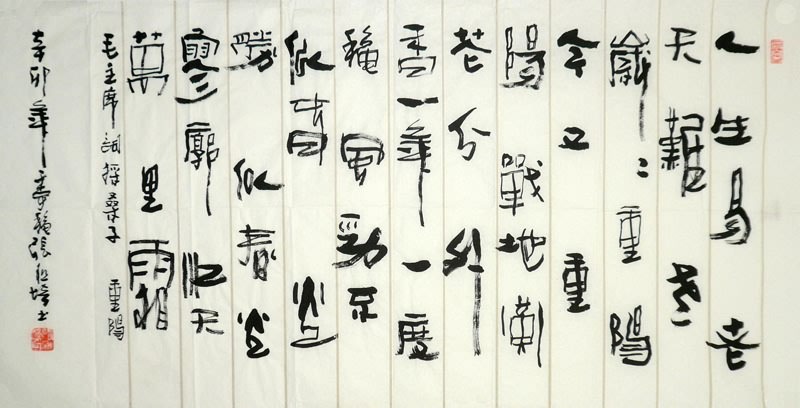 人生易老
天難老
歲〻重陽
今又重
陽戰地黃
花分外
香一年一度
穐風勁不
似旾光
勝似春光
寥廓江天
萬里霜
毛主席詞採桑子 重陽
辛卯年季穐張